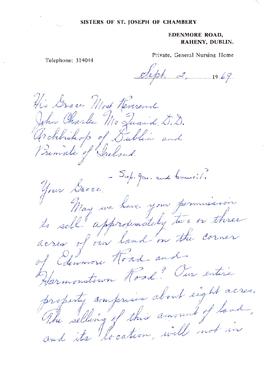 SISTERS OF ST. JOSEPH OF CHAMBERY
EDENMORE ROAD,
RAHENY, DUBLIN.
Private, General Nursing Home
Telephone: 314044
Sept. 2, 1969
His Grace Most Reverend
John Charles Mc Quaid D.D.
Archbishop of Dublin and
Primate of Ireland
Your Grace,
May we have your permission
to sell approximately two or three
acres of our land on the corner
of Edenmore Road and
Harmonstown Road? Our entire
property comprises about eight acres.
The selling of this amount of land,
and its location, will not in